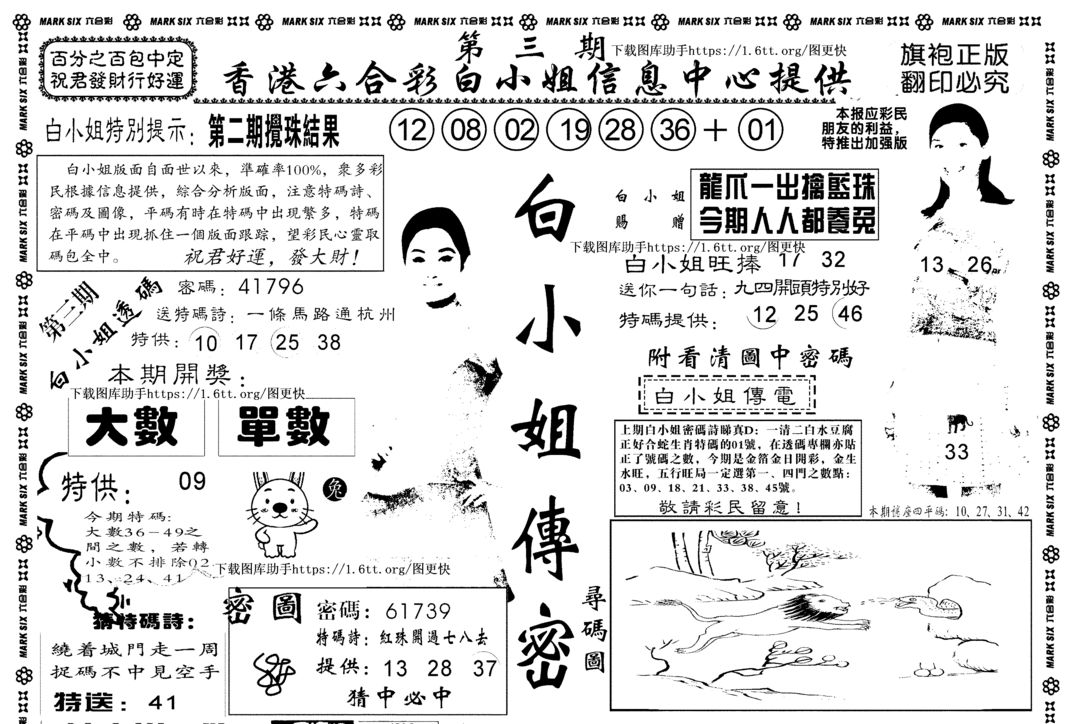 MARK SIX 六合彩 MARK SIX 六合彩 MARK SIX 六合彩 MARK SIX 六合彩 MARK SIX 六合彩 MARK SIX 六合彩 MARK SIX 六合彩 MARK SIX 六合彩
百分之百包中定
祝君發財行好運
第三期
下载图库助手https://1.6tt.org/图更快
香港六合彩白小姐信息中心提供
旗袍正版
翻印必究
白小姐特別提示：第二期攪珠結果
12 08 02 19 28 36 + 01
本报应彩民
朋友的利益，
特推出加强版
白小姐版面自面世以來，準確率100%，衆多彩
民根據信息提供，綜合分析版面，注意特碼詩、
密碼及圖像，平碼有時在特碼中出現繁多，特碼
在平碼中出現抓住一個版面跟踪，望彩民心靈取
碼包全中。 祝君好運，發大財！
第三期
白小姐透碼
密碼：41796
送特碼詩：一條馬路通杭州
特供：10 17 25 38
本期開獎：
下载图库助手https://1.6tt.org/图更快
大數 單數
特供： 09
兔
今期特碼：
大數36-49之
間之數，若轉
小數不排除02
13、24、41
下载图库助手https://1.6tt.org/图更快
小
猜特碼詩：
繞着城門走一周
捉碼不中見空手
特送：41
密圖
密碼：61739
特碼詩：紅珠開過七八去
提供：13 28 37
猜中必中
白小姐傳密
白小姐
賜贈
龍爪一出擒藍珠
今期人人都養兔
下载图库助手https://1.6tt.org/图更快
白小姐旺捧 17 32
送你一句話：九四開頭特別好
特碼提供： 12 25 46
附看清圖中密碼
白小姐傳電
上期白小姐密碼詩睇真D：一清二白水豆腐
正好合蛇生肖特碼的01號，在透碼專欄亦貼
正了號碼之數，今期是金箔金日開彩，金生
水旺，五行旺局一定選第一，四門之數點：
03、09、18、21、33、38、45號。
敬請彩民留意！
13 26
33
本期傍座四平碼：10、27、31、42
尋碼圖